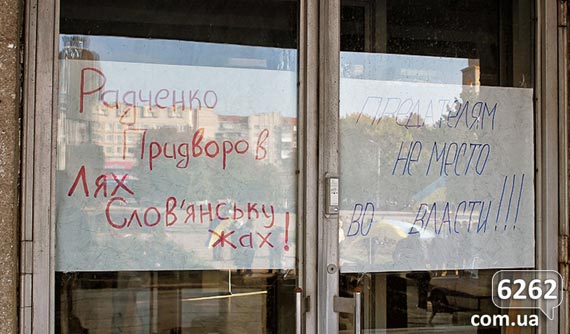 Радченко
і Придворов
Лях
Слов'янську
жах!
ПРЕДАТЕЛЯМ
НЕ МЕСТО
ВО ВЛАСТИ!!!
6262
com.ua